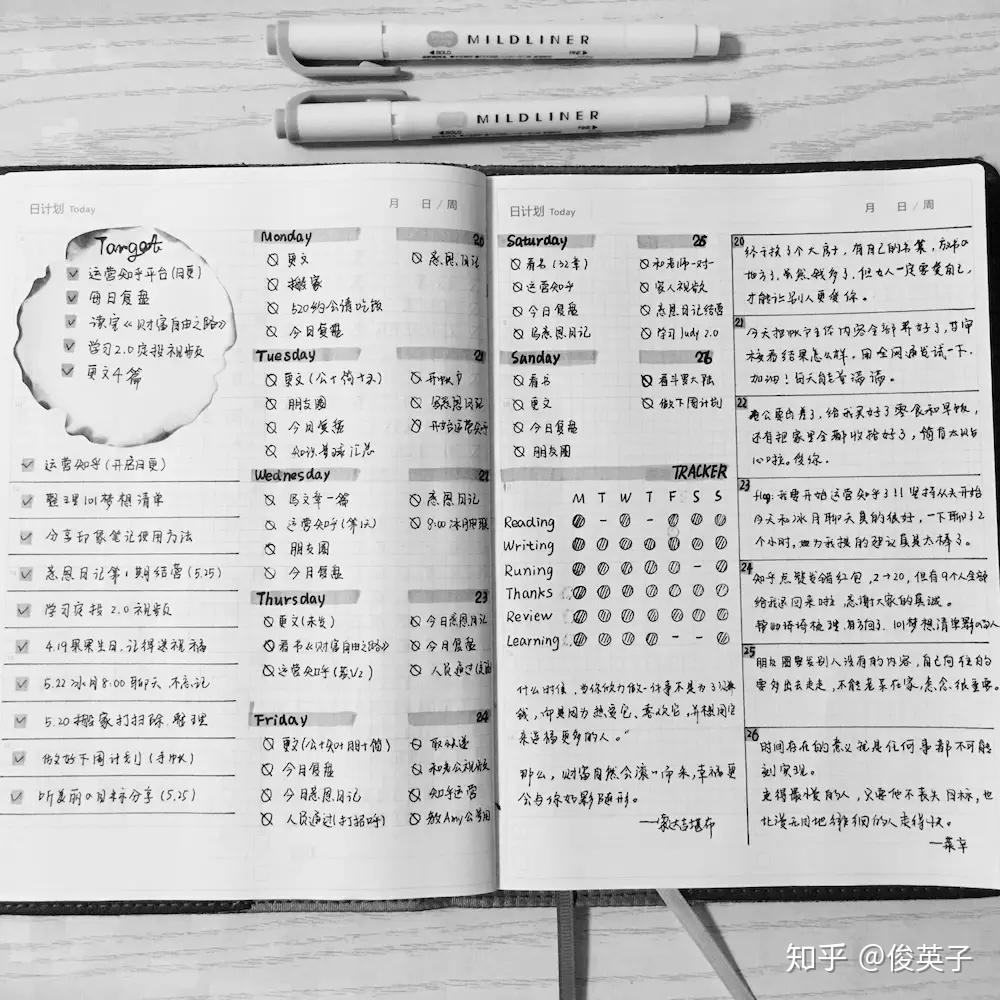 MILDLINER
BOLD FINE
MILDLINER
BOLD FINE
日计划 Today 月 日/周
Target
运营知乎平台(日更)
每日复盘
读完《财富自由之路》
学习2.0定投视频
更文4篇
运营知乎(开启日更)
整理101梦想清单
分享印象笔记使用方法
感恩日记第1期结营(5.25)
学习定投2.0视频
4.19果果生日,记得送祝福
5.22冰月8:00聊天 不忘记
5.20搬家打扫除 整理
做好下周计划(手帐)
听美丽の目标分享(5.25)
Monday 20
更文 感恩日记
搬家
520约公请吃饭
今日复盘
Tuesday 21
更文(公+简+头) 开帐户
朋友圈 写感恩日记
今日复盘 开始运营知乎
知识 汇总
Wednesday 22
写文章一篇 感恩日记
运营知乎(第1天) 8:00冰月聊
朋友圈
今日复盘
Thursday 23
更文(未发) 今日感恩日记
看书《财富自由之路》 今日复盘
运营知乎(第V2) 人员通过
Friday 24
更文(公+知+朋+简) 取快递
今日复盘 和老公视频
今日感恩日记 知乎运营
人员通过(打招呼) 教Amy公号
日计划 Today 月 日/周
Saturday 25
看书(32章) 和老师一对一
运营知乎 家人视频
今日复盘 感恩日记结营
写感恩日记 学习Judy 2.0
Sanday 26
看书 看斗罗大陆
更文 做下周计划
今日复盘
朋友圈
TRACKER
M T W T F S S
Reading
Writing
Runing
Thanks
Review
Learning
什么时候,当你做力做一件事不是为了赚
钱,而是因为热爱它、喜欢它,并想用它
来造福更多的人。”
那么,财富自然会滚口而来,幸福更
会与你如影随形。
——蒙达吉堪布
20
终于换了个大房子,有自己的书案,放书の
地方了,虽然钱多了,但女人一定要爱自己,
才能让别人更爱你。
21
今天把帐户主体内容全部弄好了,甘审
核看结果怎么样。用全网通发试一下.
加油!每天能量满满。
22
老公要出差了,给我买好了零食和早饭,
还有把家里全部收拾好了,简直太贴
心啦。爱你.
23
flag:我要开始运营知乎了!!坚持从今开始
今天和冰月聊天真的很好,一下聊了2
个小时,她为我提的建议真是太棒了。
24
知乎点赞发错红包,2→20,但有9个人全部
给我退回来啦 感谢大家的真诚。
帮助琦琦梳理 101梦想清单
25
朋友圈要发别人没有的内容,自己向往的
要多出去走走,不能老呆在家,意念很重要。
26
时间存在的意义就是任何事都不可能
立刻实现。
走得最慢的人,只要他不丧失目标,也
比漫无目地徘徊的人走得快。
—莱辛
知乎 @俊英子